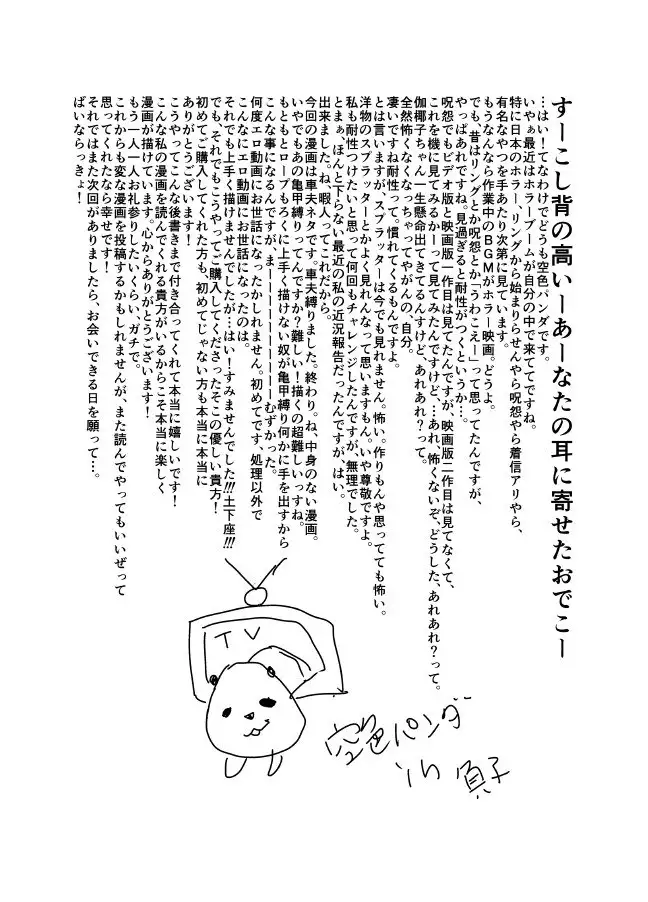 すーこし背の高いーあーなたの耳に寄せたおでこー
…はい！てなわけでどうも空色パンダです。
いやぁ最近はホラーブームが自分の中で来ててですね。
特に日本のホラー、リングから始まりらせんやら呪怨やら着信アリやら、
有名なやつを手あたり次第に見ています。
もうなんなら作業中のＢＧＭがホラー映画。どうよ。
でも、昔はリングとか呪怨とか「うわこえー」って思ってたんですが、
やっぱあれですね。見過ぎると耐性がつくというか…。
呪怨でもビデオ版と映画版一作目は見てたんですが、映画版二作目は見てなくて、
これを機に見てみるかーって見てみたんですけど、…あれ、怖くないぞ、どうした、あれあれ？って。
伽椰子ちゃん一生懸命出てきてるんすけど、あれあれ？って。
全然怖くなくなっちゃってやがんの、自分。
凄いですね耐性って。慣れてくるもんですよ。
とは言いますが、スプラッターは今でも見れません。怖い。作りもんや思ってても怖い。
洋物のスプラッターとかよく見れんなって思いますもん。いや尊敬ですよ。
私も耐性つけたいと思って何回もチャレンジしたんですが、無理でした。
とまぁ、ほんと下らない最近の私の近況報告だったんですが、はい。
出来ました。ね、暇人ってこれだから。
今回の漫画は車夫ネタです。車夫縛りました。終わり。ね、中身のない漫画。
いやでもあの亀甲縛りってんですか？難しい！描くの超難しいっすね。
もともとロープもろくに上手く描けない奴が亀甲縛り何かに手を出すから
こんな事になるんですが、まーーーーーーーーーむずかった。
何度エロ動画にお世話になったかしれません。初めてです。処理以外で
こんなにエロ動画にお世話になったのは。
それでも上手く描けませんでしたが…はい！すみませんでした!!!土下座!!!
でも、それでもこうやってご購入してくださったそこの優しい貴方！
初めてご購入してくれた方も、初めてじゃない方も本当に本当に
ありがとうございます！
こうやってこんな後書きまで付き合ってくれて本当に嬉しいです！
こんな私の漫画を読んでくれる貴方がいるからこそ本当に楽しく
漫画が描けています。心からありがとうございます！
もう一人一人お礼参りしたいくらい、ガチで。
これからも変な漫画を投稿するかもしれませんが、また読んでやってもいいぜって
思ってくれたなら幸せです！
それではまた次回がありましたら、お会いできる日を願って…。
ばいならっきょ！
TV
空色パンダ
貞子